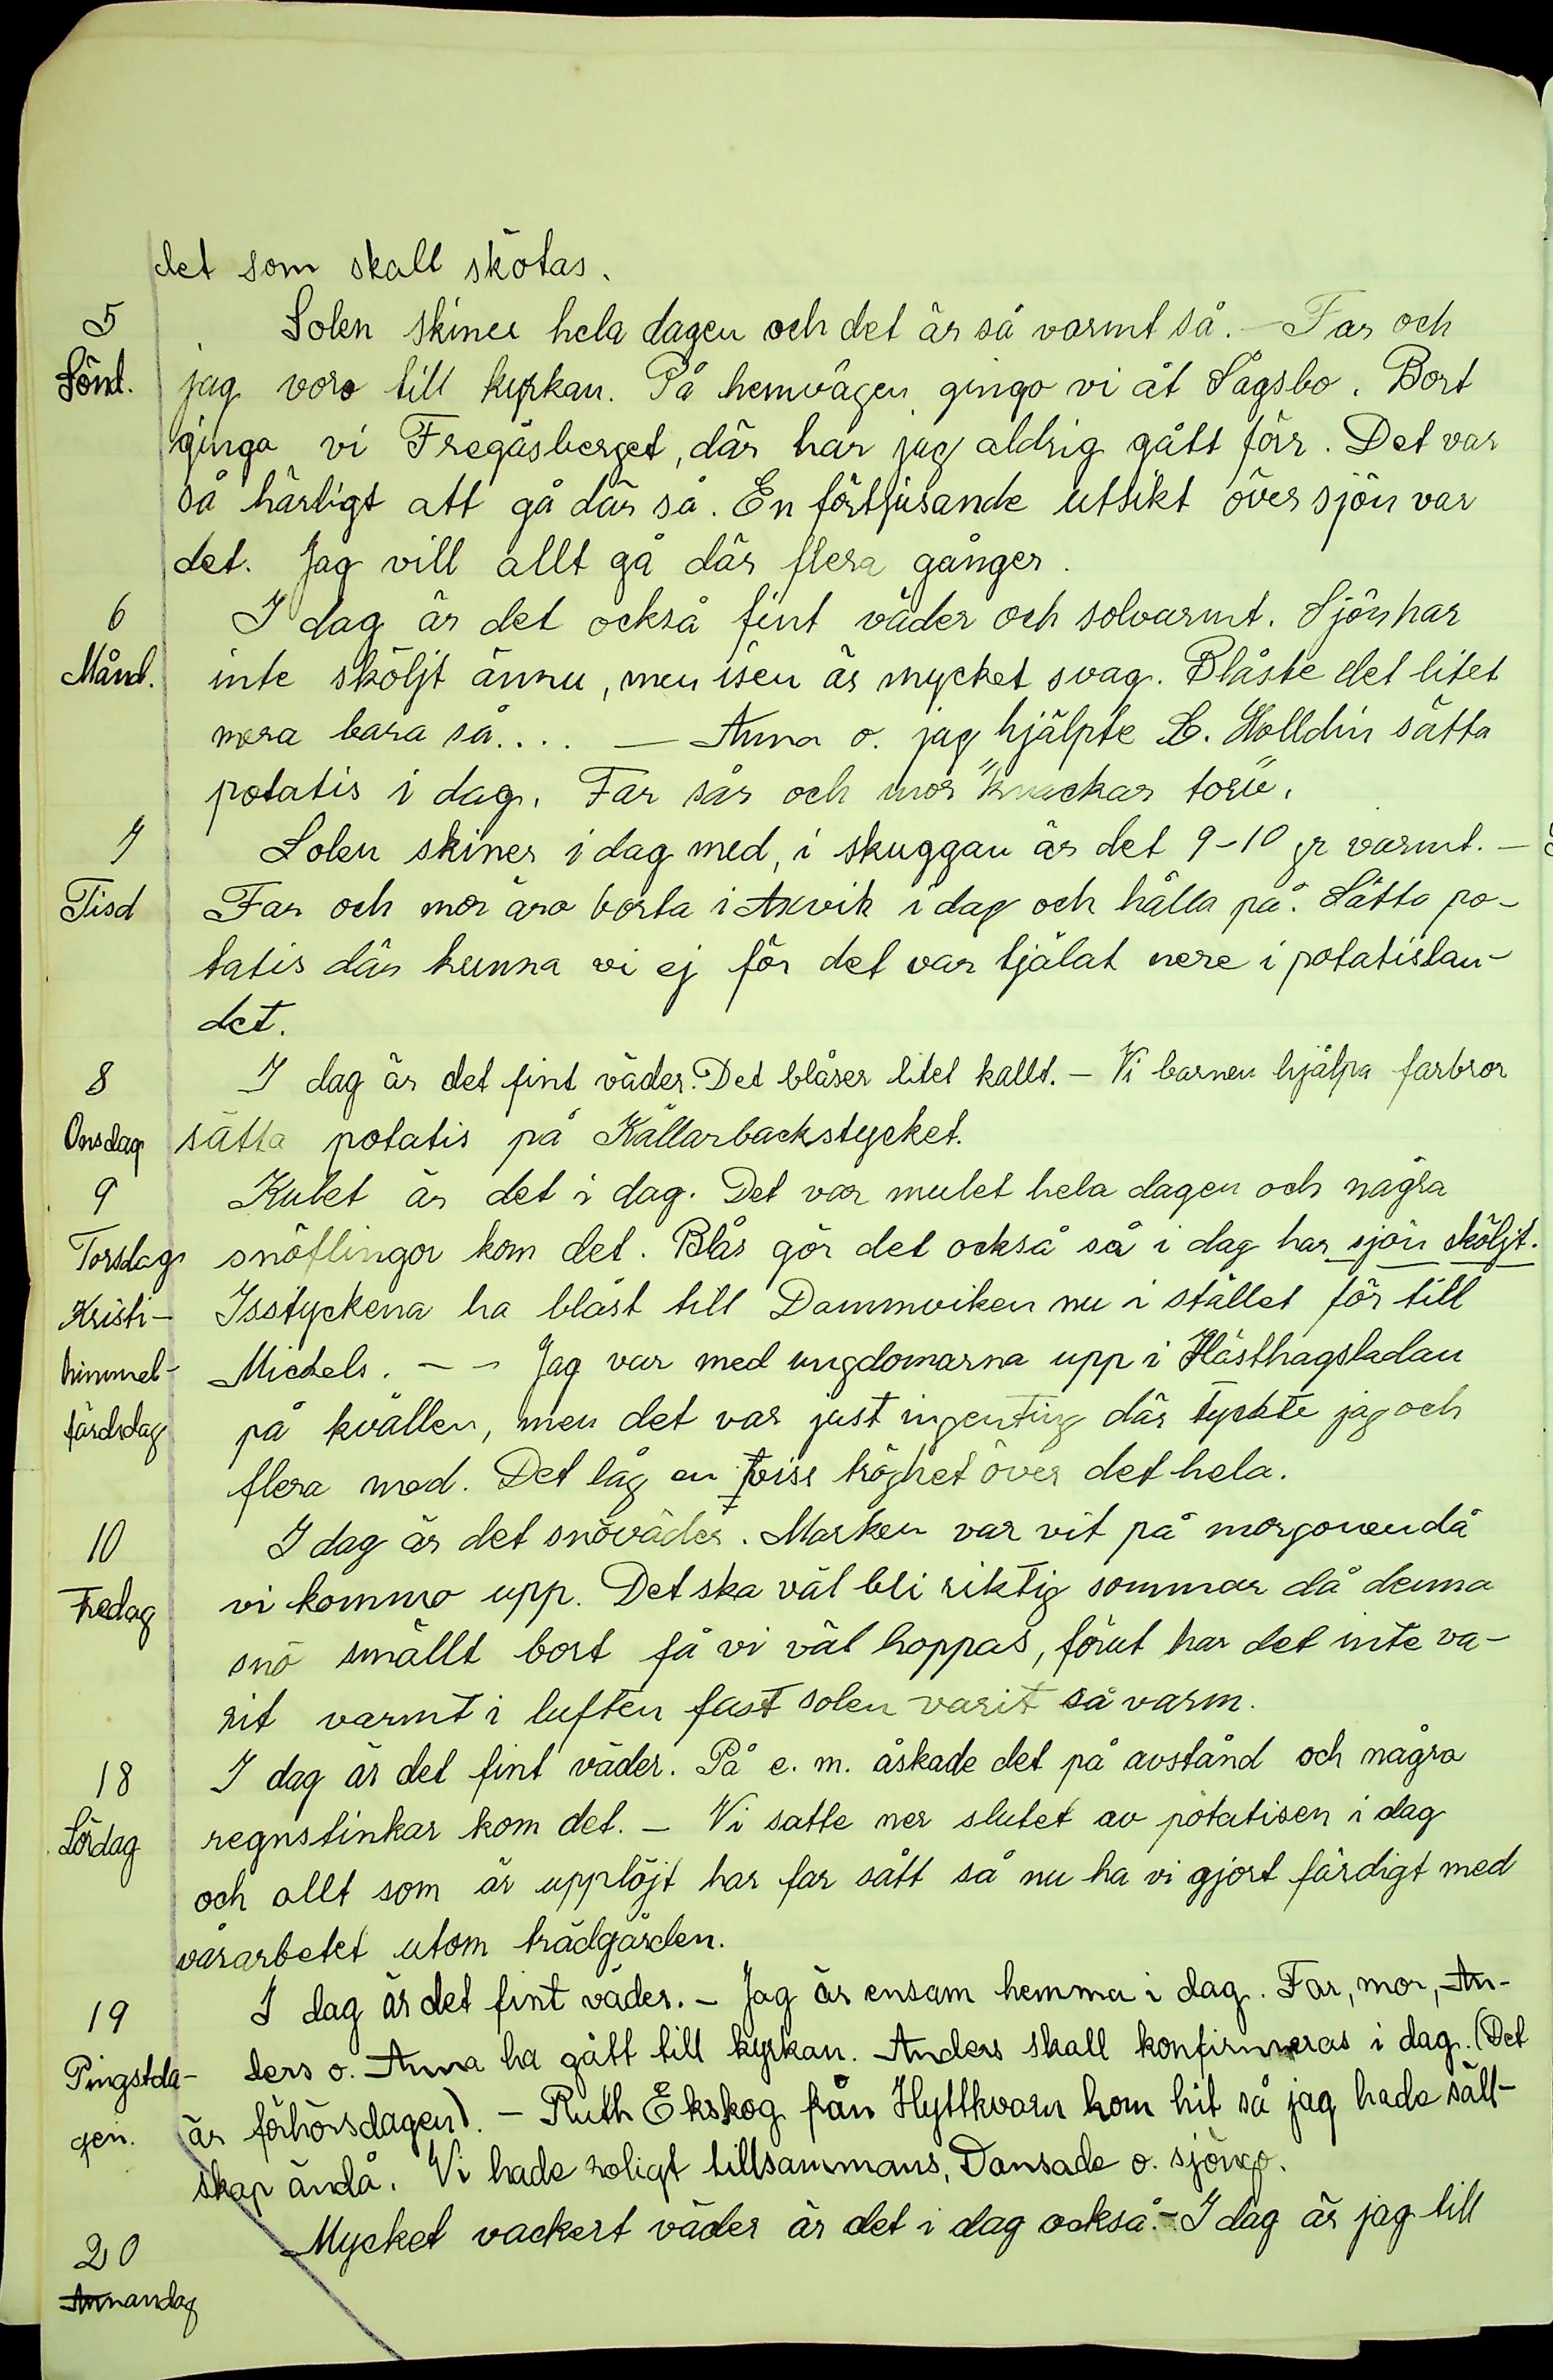 det som skall skötas.
5 Solen skiner hela dagen och det är så varmt så. — Far och
Sönd. jag voro till kyrkan. På hemvägen gingo vi åt Sågsbo. Bort
gingo vi Fregåsberget, där har jag aldrig gått förr. Det var
så härligt att gå där så. En förtjusande utsikt över sjön var
det. Jag vill allt gå där flera gånger.
6 I dag är det också fint väder och solvarmt. Sjön har
Månd. inte sköljt ännu, men isen är mycket svag. Blåste det litet
mera bara så.... — Anna o. jag hjälpte L. Holldin sätta
potatis i dag. Far sår och mor "knackar torv".
7 Solen skiner i dag med, i skuggan är det 9-10 gr varmt. —
Tisd Far och mor äro borta i Axvik i dag och hålla på. Sätta po-
tatis där kunna vi ej för det var tjälat nere i potatislan-
det.
8 I dag är det fint väder. Det blåser litet kallt. — Vi barnen hjälpa farbror
Onsdag sätta potatis på Källarbackstycket.
9 Kulet är det i dag. Det var mulet hela dagen och några
Torsdag snöflingor kom det. Blås gör det också så i dag har sjön sköljt.
Kristi- Isstyckena ha blåst till Dammviken nu i stället för till
himmel- Michels. — — Jag var med ungdomarna upp i Hästhagsladan
färdsdag på kvällen, men det var just ingenting där tyckte jag och
flera med. Det låg en viss tröghet över det hela.
10 I dag är det snöväder. Marken var vit på morgonen då
Fredag vi kommo upp. Det ska väl bli riktig sommar då denna
snö smällt bort få vi väl hoppas, förut har det inte va-
rit varmt i luften fast solen varit så varm.
18 I dag är det fint väder. På e. m. åskade det på avstånd och några
Lördag regnstinkar kom det. — Vi satte ner slutet av potatisen i dag
och allt som är upplöjt har far sått så nu ha vi gjort färdigt med
vårarbetet utom trädgården.
19 I dag är det fint väder. — Jag är ensam hemma i dag. Far, mor, An-
Pingstda- ders o. Anna ha gått till kyrkan. Anders skall konfirmeras i dag. (Det
gen. är förhörsdagen). — Ruth Ekskog från Hyttkvarn kom hit så jag hade säll-
skap ändå. Vi hade roligt tillsammans, Dansade o. sjöngo.
20 Mycket vackert väder är det i dag också. — I dag är jag till
Annandag